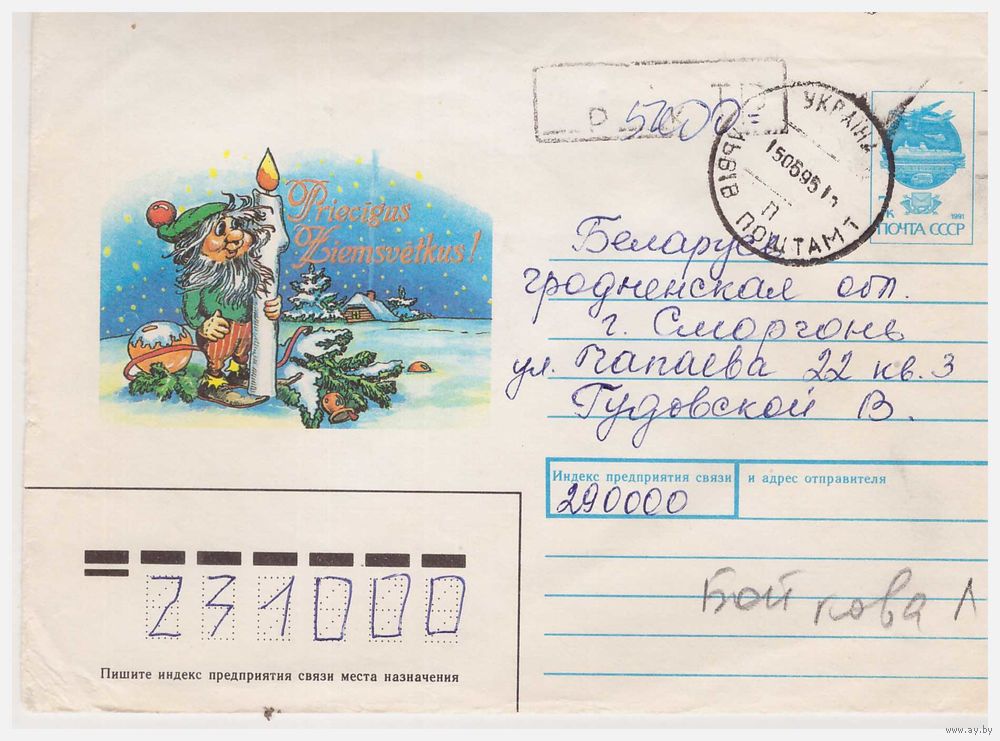 5000
УКРАЇНА
ЛЬВІВ
150695
П
ПОШТАМТ
7к
1991
ПОЧТА СССР
Priecīgus
Ziemsvētkus!
Беларусь
гродненская обл.
г. Сморгонь
ул. Чапаева 22 кв. 3
Гудовской В.
Индекс предприятия связи и адрес отправителя
290000
231000
Бойкова Л
Пишите индекс предприятия связи места назначения
www.ay.by